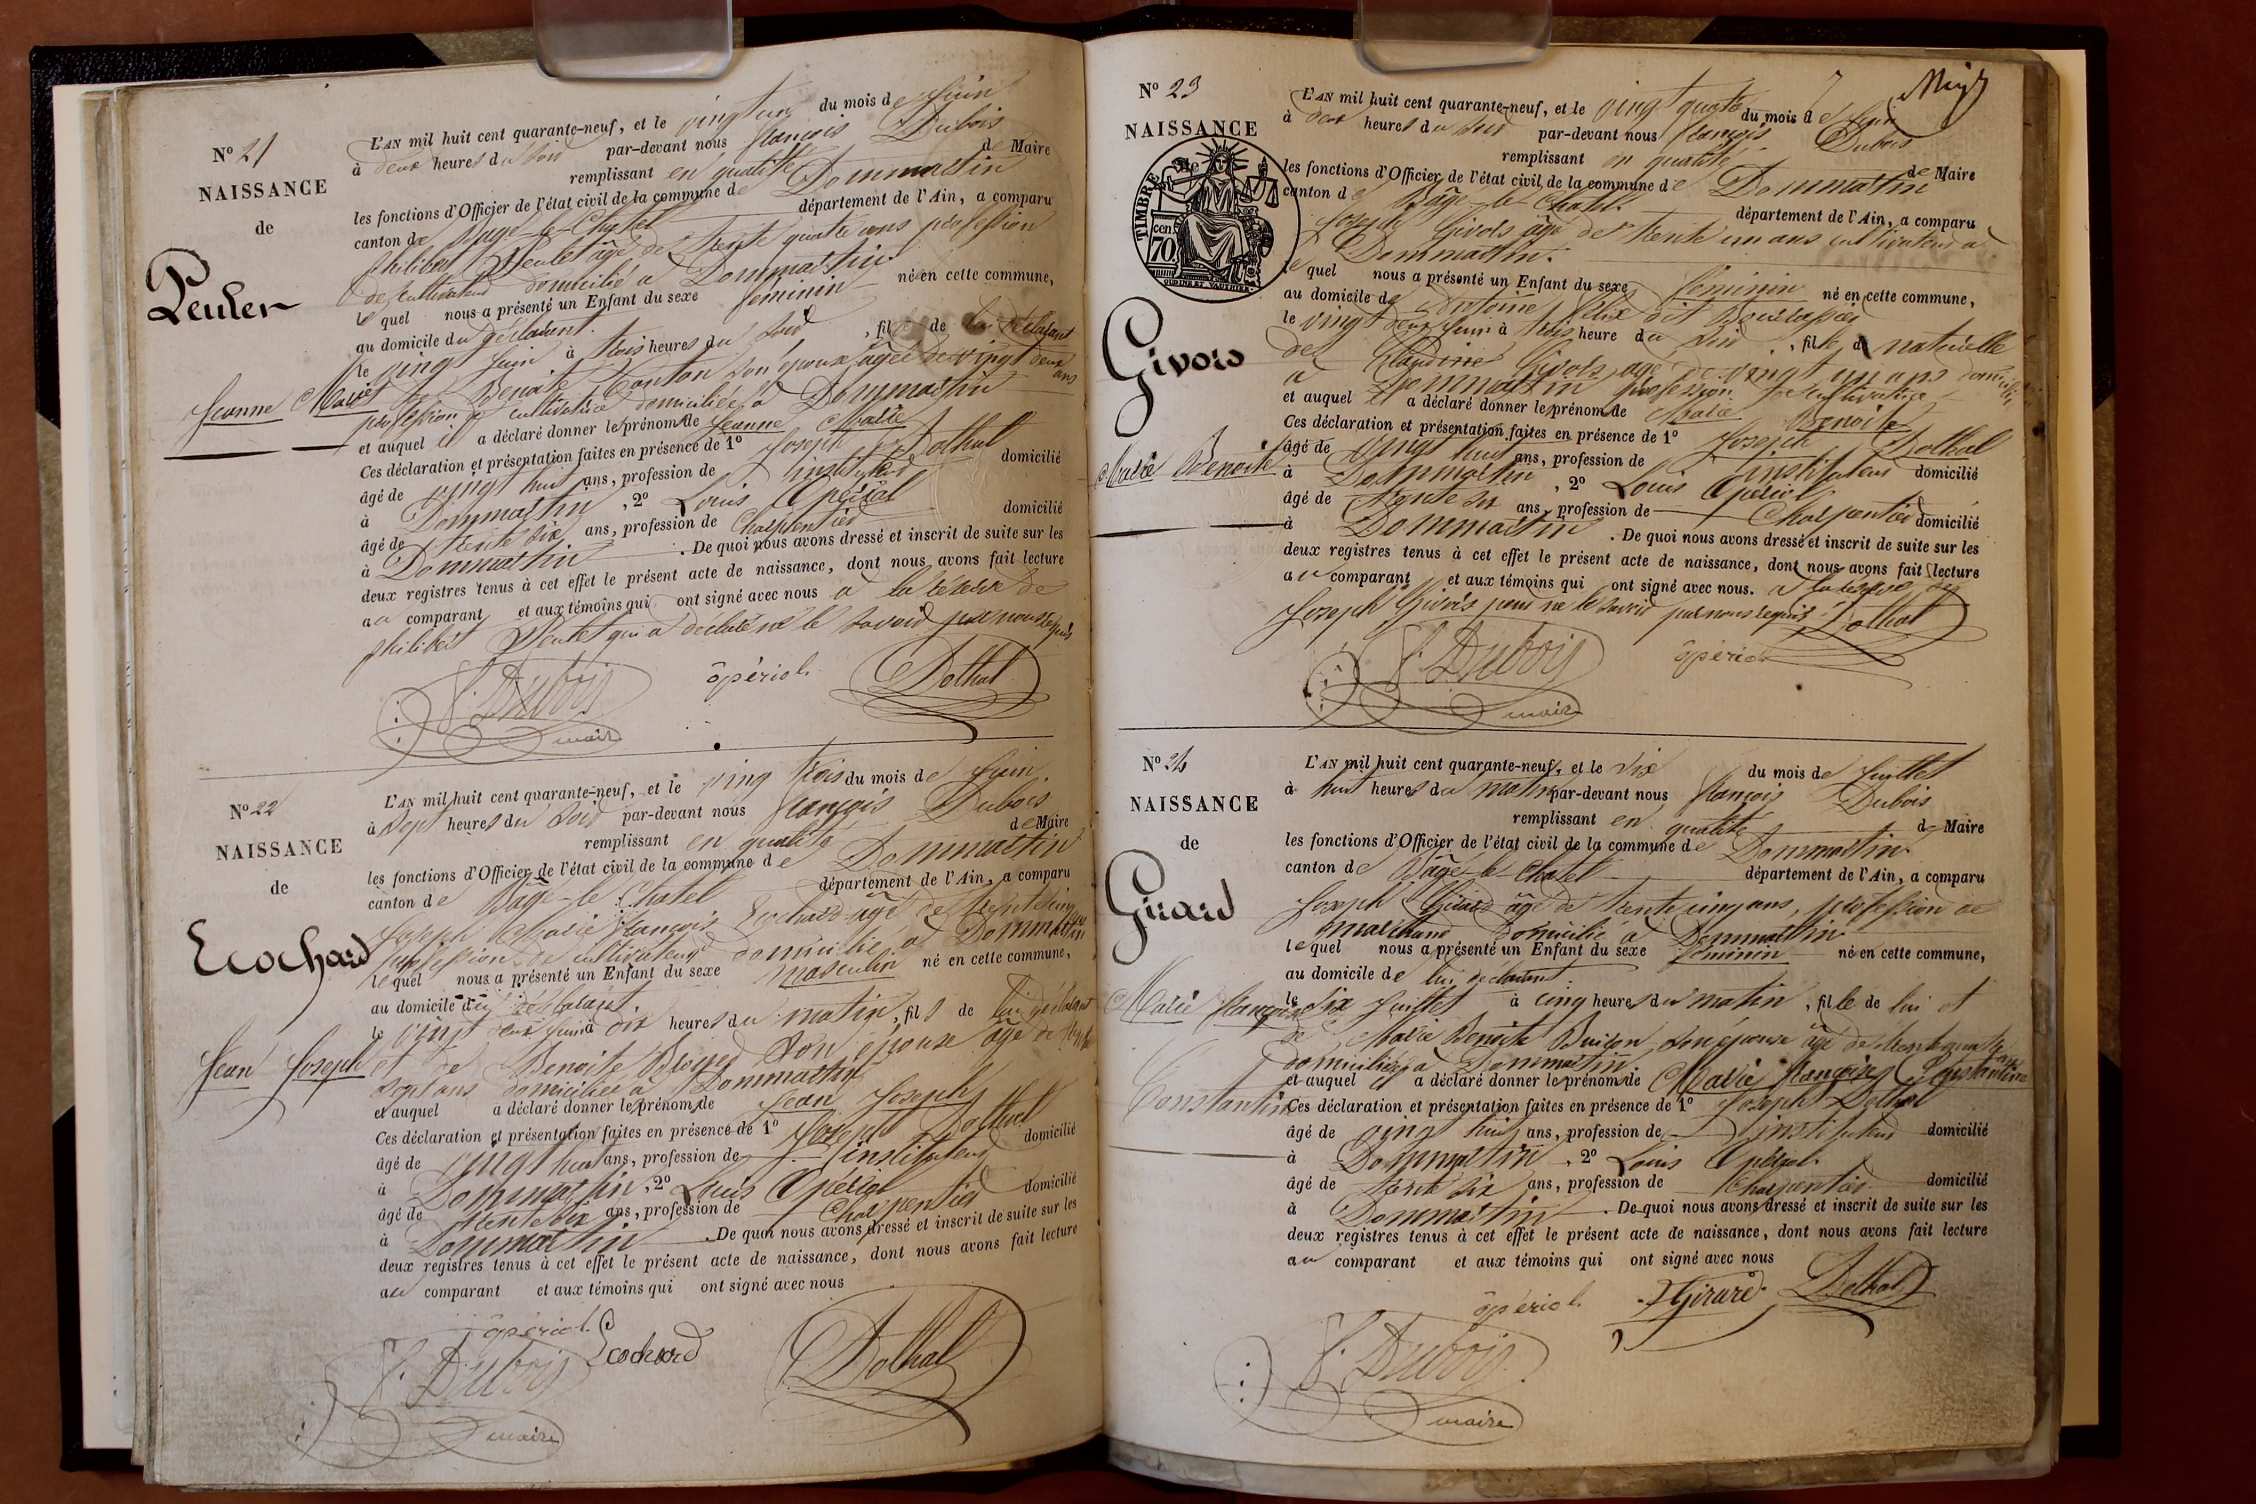 N° 21
NAISSANCE
de
Peulet
Jeanne Marie
L'AN mil huit cent quarante-neuf, et le vingt un du mois de Juin
à deux heures du soir par-devant nous françois Dubois
remplissant en qualité de Maire
les fonctions d'Officier de l'état civil de la commune de Dommartin
canton de Bâgé-le-Chatel département de l'Ain, a comparu
philibert Peulet âgé de trente quatre ans profession
de cultivateur domicilié à Dommartin.
lequel nous a présenté un Enfant du sexe féminin né en cette commune,
au domicile du déclarant.
le vingt juin à trois heures du soir, fille de lui déclarant
et de Benoite Canton son épouse âgée de vingt deux ans
profession de cultivatrice domiciliée à Dommartin
et auquel il a déclaré donner le prénom de Jeanne Marie
Ces déclaration et présentation faites en présence de 1° Joseph Dothal
âgé de vingt huit ans, profession de instituteur domicilié
à Dommartin, 2° Louis Opériol
âgé de trente six ans, profession de Charpentier domicilié
à Dommartin. De quoi nous avons dressé et inscrit de suite sur les
deux registres tenus à cet effet le présent acte de naissance, dont nous avons fait lecture
au comparant et aux témoins qui ont signé avec nous à la réserve de
philibert Peulet qui a déclaré ne le savoir par nous requis
F. Dubois maire opériol. Dothal
N° 22
NAISSANCE
de
Ecochard
Jean Joseph
L'AN mil huit cent quarante-neuf, et le vingt trois du mois de Juin.
à sept heures du soir par-devant nous françois Dubois
remplissant en qualité de Maire
les fonctions d'Officier de l'état civil de la commune de Dommartin
canton de Bâgé-le-Chatel département de l'Ain, a comparu
Joseph Marie françois Ecochard âgé de trente cinq
profession de cultivateur domicilié à Dommartin
lequel nous a présenté un Enfant du sexe masculin né en cette commune,
au domicile du déclarant.
le vingt deux juin à dix heures du matin, fils de lui déclarant
et de Benoite son épouse âgé de
sept ans domiciliée à Dommartin
et auquel a déclaré donner le prénom de Jean Joseph
Ces déclaration et présentation faites en présence de 1° Joseph Dothal
âgé de vingt huit ans, profession de instituteur domicilié
à Dommartin, 2° Louis Opériol
âgé de trente six ans, profession de Charpentier domicilié
à Dommartin. De quoi nous avons dressé et inscrit de suite sur les
deux registres tenus à cet effet le présent acte de naissance, dont nous avons fait lecture
au comparant et aux témoins qui ont signé avec nous
opériol. Ecochard Dothal
F. Dubois
maire
N° 23
NAISSANCE
TIMBRE
cen. 70
Givors
Marie Benoite
L'AN mil huit cent quarante-neuf, et le vingt quatre du mois de Juin
à deux heures du soir par-devant nous françois Dubois
remplissant en qualité de Maire
les fonctions d'Officier de l'état civil de la commune de Dommartin
canton de Bâgé-le-Chatel. département de l'Ain, a comparu
Joseph Givors âgé de trente un ans cultivateur à
Dommartin.
lequel nous a présenté un Enfant du sexe féminin né en cette commune,
au domicile de Antoine félix dit
le vingt deux juin à trois heure du soir, fille naturelle
de Claudine Givors âgé de vingt un ans domicilié
à Dommartin profession de cultivatrice
et auquel il a déclaré donner le prénom de Marie Benoite
Ces déclaration et présentation faites en présence de 1° Joseph Dothal
âgé de vingt huit ans, profession de instituteur domicilié
à Dommartin, 2° Louis Opériol
âgé de trente six ans, profession de Charpentier domicilié
à Dommartin. De quoi nous avons dressé et inscrit de suite sur les
deux registres tenus à cet effet le présent acte de naissance, dont nous avons fait lecture
au comparant et aux témoins qui ont signé avec nous. à la réserve de
Joseph Givors pour ne le savoir par nous requis Dothal
F. Dubois opériol
maire
N° 24
NAISSANCE
de
Girard
Marie françoise
Constantine
L'AN mil huit cent quarante-neuf, et le six du mois de Juillet
à huit heures du matin par-devant nous françois Dubois
remplissant en qualité de Maire
les fonctions d'Officier de l'état civil de la commune de Dommartin
canton de Bâgé-le-Chatel département de l'Ain, a comparu
Joseph Girard âgé de trente cinq ans, profession de
marchand domicilié à Dommartin
lequel nous a présenté un Enfant du sexe féminin né en cette commune,
au domicile de lui déclarant.
le six Juillet à cinq heures du matin, fille de lui et
de Marie Benoite Buiron son épouse âgé de trente quatre ans
domiciliée à Dommartin
et auquel il a déclaré donner le prénom de Marie françoise Constantine
Ces déclaration et présentation faites en présence de 1° Joseph Dothal
âgé de vingt huit ans, profession de instituteur domicilié
à Dommartin, 2° Louis Opériol.
âgé de trente six ans, profession de Charpentier domicilié
à Dommartin. De quoi nous avons dressé et inscrit de suite sur les
deux registres tenus à cet effet le présent acte de naissance, dont nous avons fait lecture
au comparant et aux témoins qui ont signé avec nous
opériol. J Girard. Dothal
F. Dubois.
maire